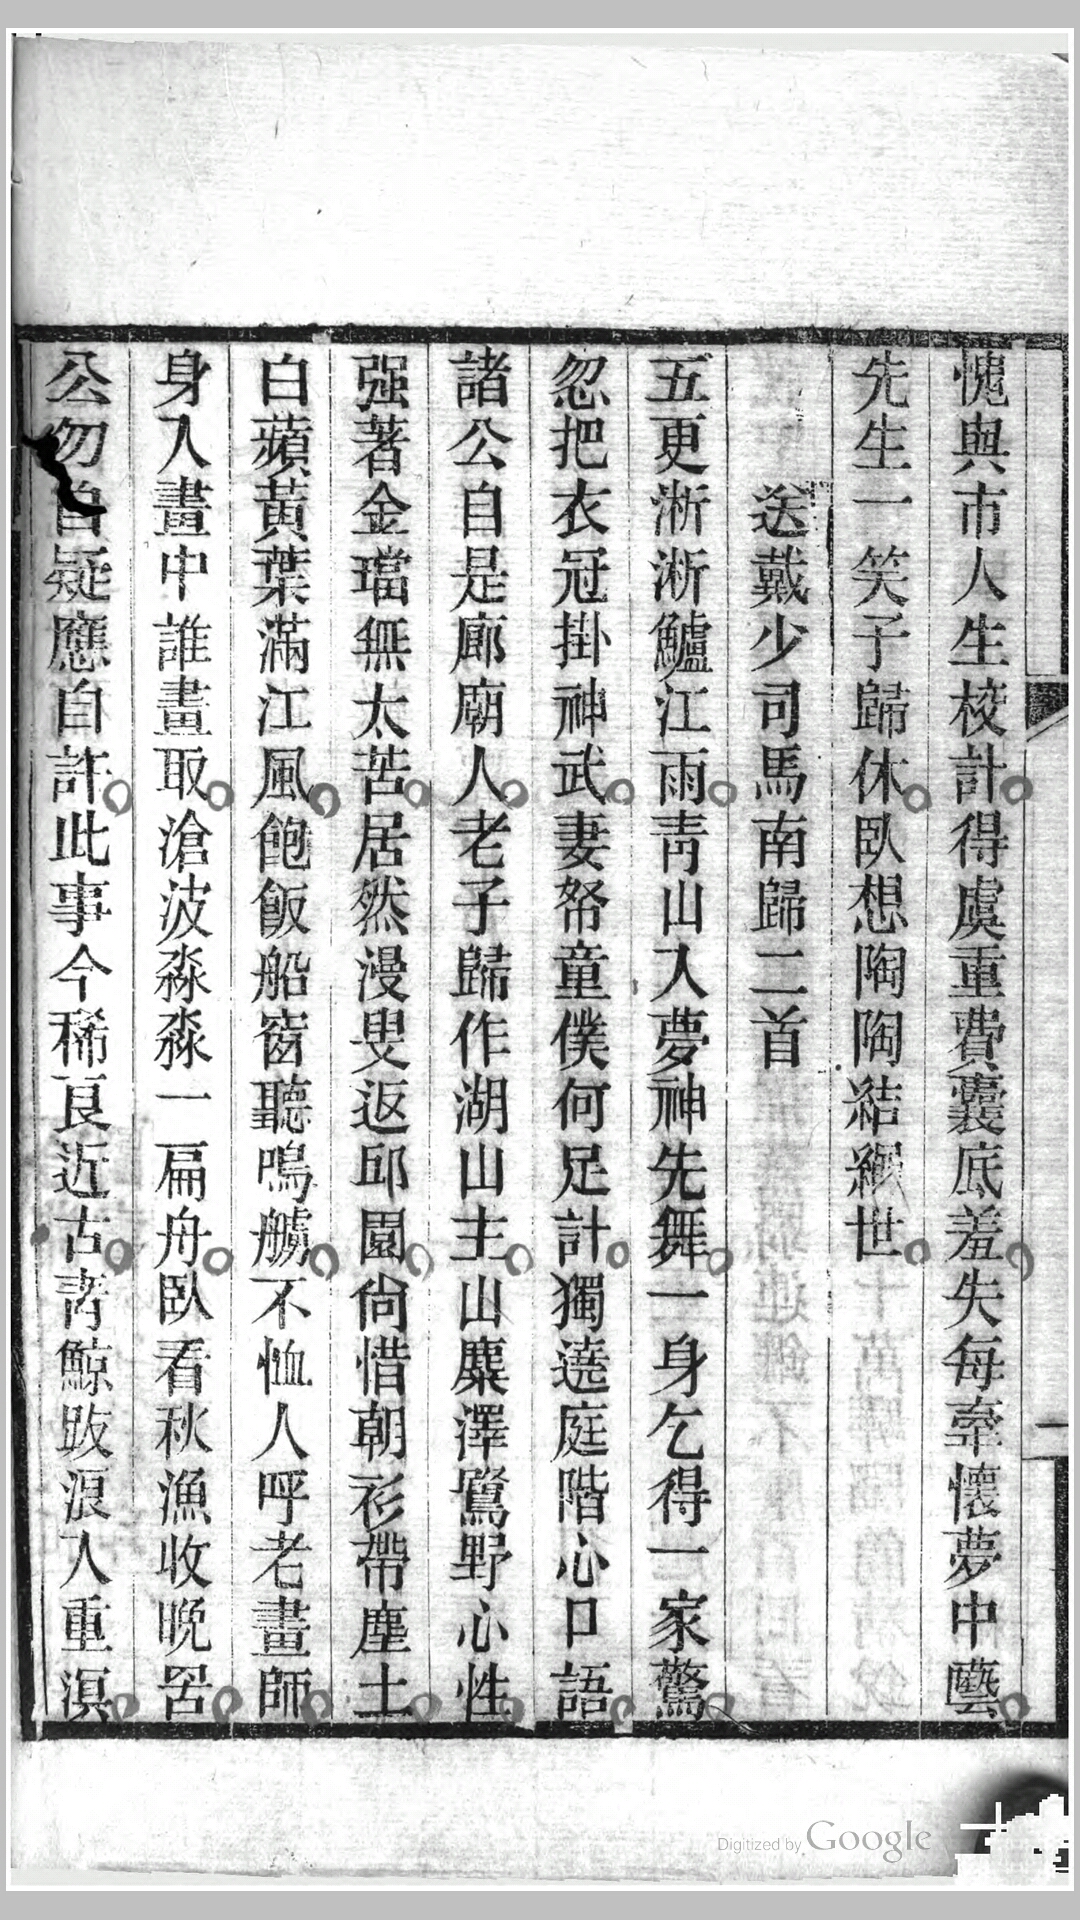 愧與市人生校計得虞重費囊底羞失每牽懷夢中藝
先生一笑子歸休臥想陶陶結繩世
送戴少司馬南歸二首
五更淅淅鱸江雨青山入夢神先舞一身乞得一家驚
忽把衣冠掛神武妻帑童僕何足計獨遶庭階心口語
諸公自是廊廟人老子歸作湖山主山麋澤鷺野心性
强著金璫無太苦居然漫叟返邱園尙惜朝衫帶塵土
白蘋黃葉滿江風飽飯船窗聽鳴艣不恤人呼老畫師
身人畫中誰畫取滄波淼淼一扁舟臥看秋漁收晩罟
公勿自疑應自許此事今稀良近古靑鯨跋浪人重溟
Digitized by Google